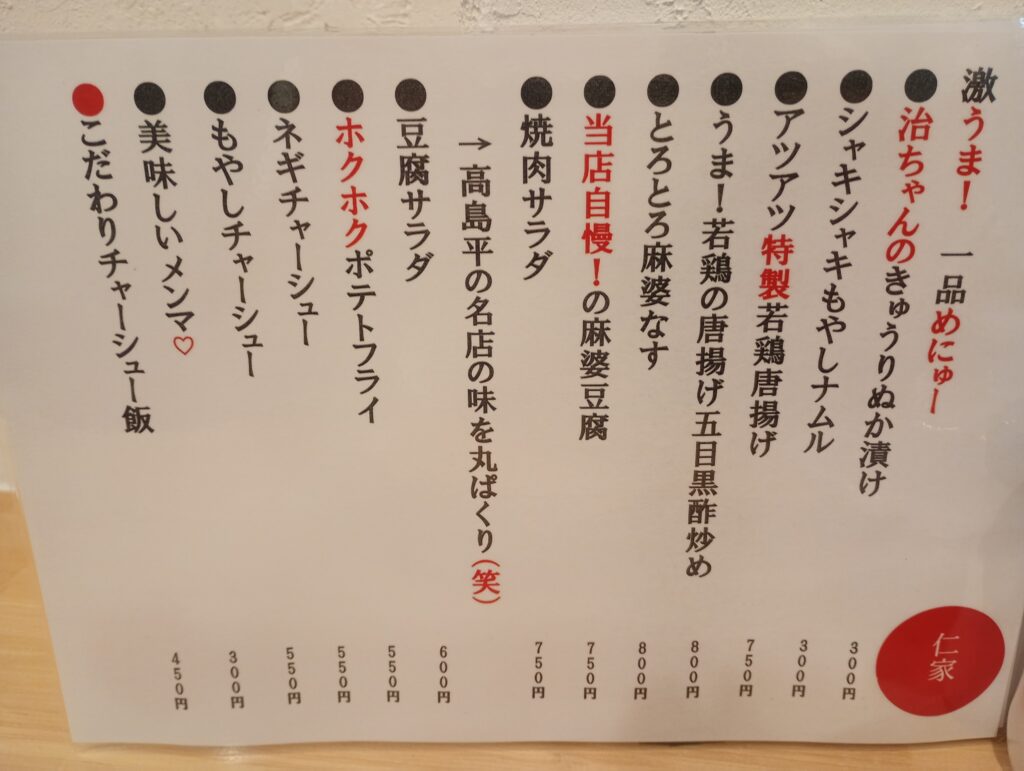 激うま！　一品めにゅー
●治ちゃんのきゅうりぬか漬け　300円
●シャキシャキもやしナムル　300円
●アツアツ特製若鶏唐揚げ　750円
●うま！若鶏の唐揚げ五目黒酢炒め　800円
●とろとろ麻婆なす　800円
●当店自慢！の麻婆豆腐　750円
●焼肉サラダ　750円
→高島平の名店の味を丸ぱくり(笑)
●豆腐サラダ　600円
●ホクホクポテトフライ　550円
●ネギチャーシュー　550円
●もやしチャーシュー　550円
●美味しいメンマ♡　300円
●こだわりチャーシュー飯　450円
仁家